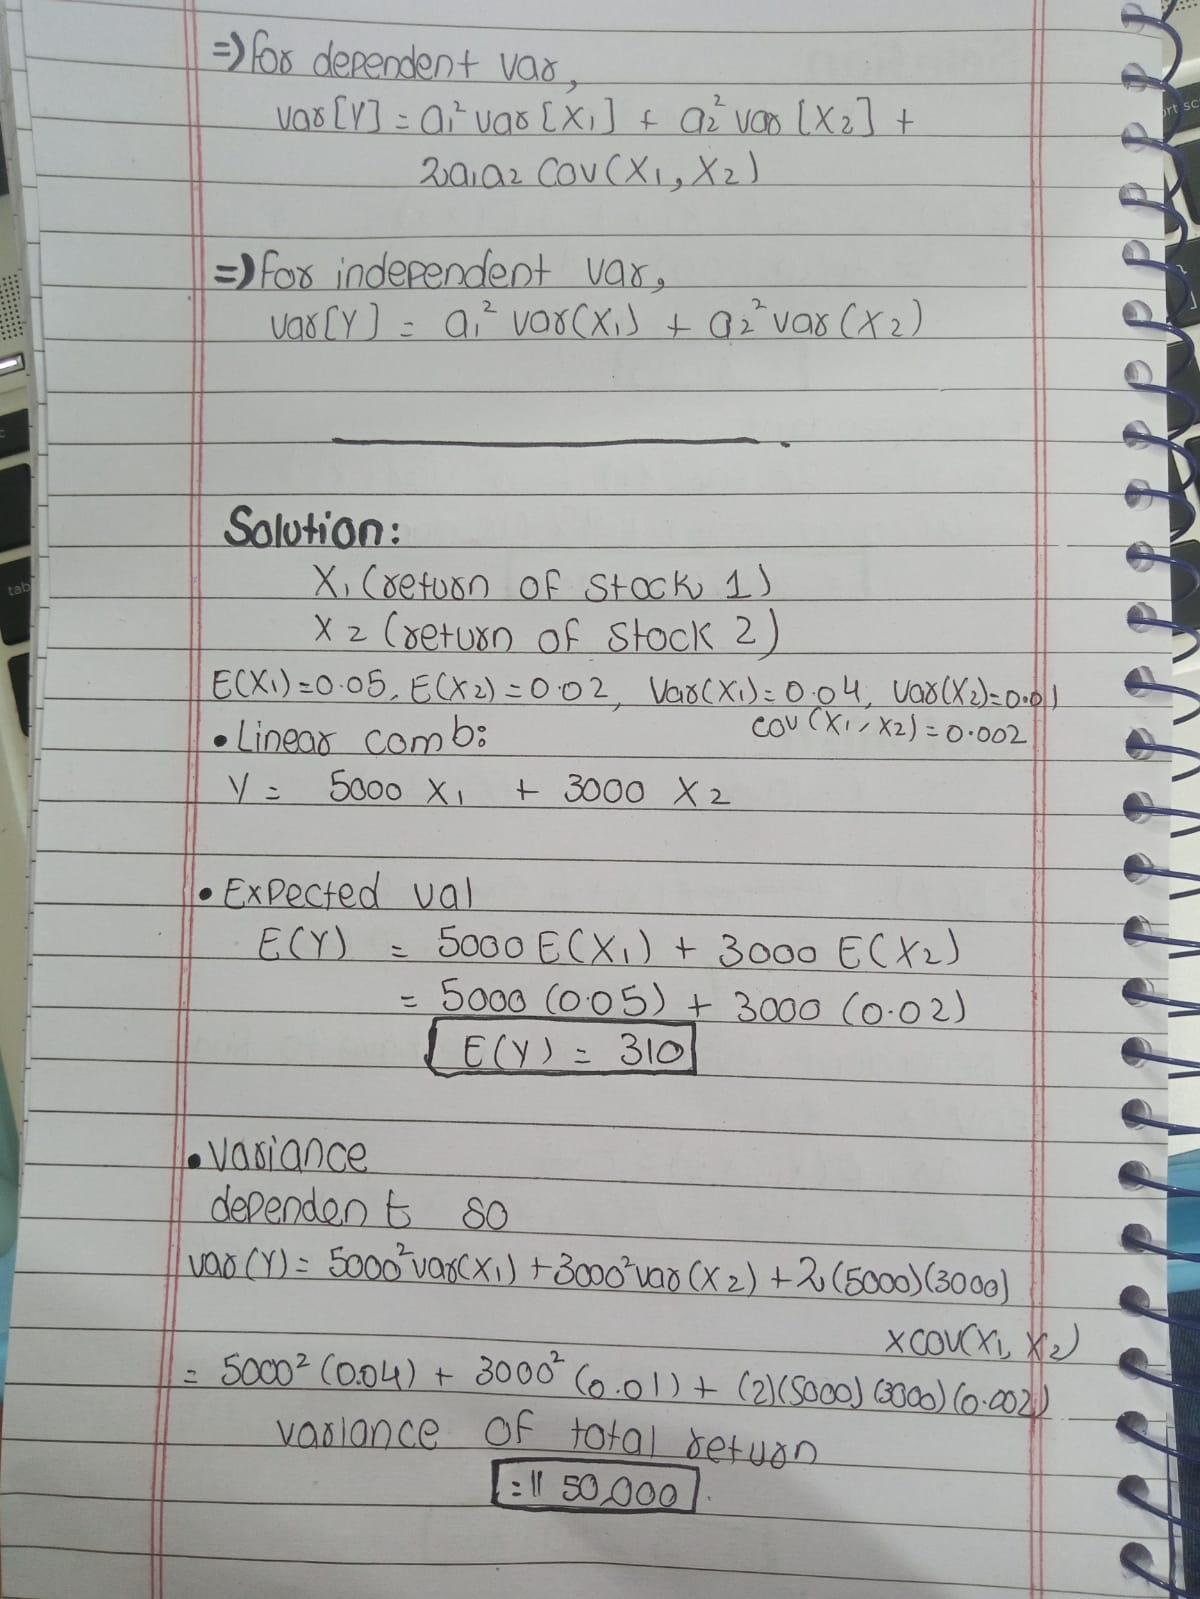 =) for dependent var,
var[Y] = a₁² var[X₁] + a₂² var[X₂] +
2a₁a₂ cov(X₁, X₂)
=) For independent var,
var[Y] = a₁² var(X₁) + a₂² var(X₂)
Solution:
X₁ (return of stock 1)
X₂ (return of stock 2)
E(X₁)=0.05, E(X₂)=0.02, Var(X₁)=0.04, Var(X₂)=0.01
cov(X₁, X₂)=0.002
• Linear comb:
Y = 5000 X₁ + 3000 X₂
• Expected val
E(Y) = 5000 E(X₁) + 3000 E(X₂)
= 5000 (0.05) + 3000 (0.02)
E(Y) = 310
• Variance
dependent so
var(Y) = 5000² var(X₁) + 3000² var(X₂) + 2(5000)(3000)
x cov(X₁, X₂)
= 5000² (0.04) + 3000² (0.01) + (2)(5000)(3000)(0.002)
variance of total return
= 1150,000
tab